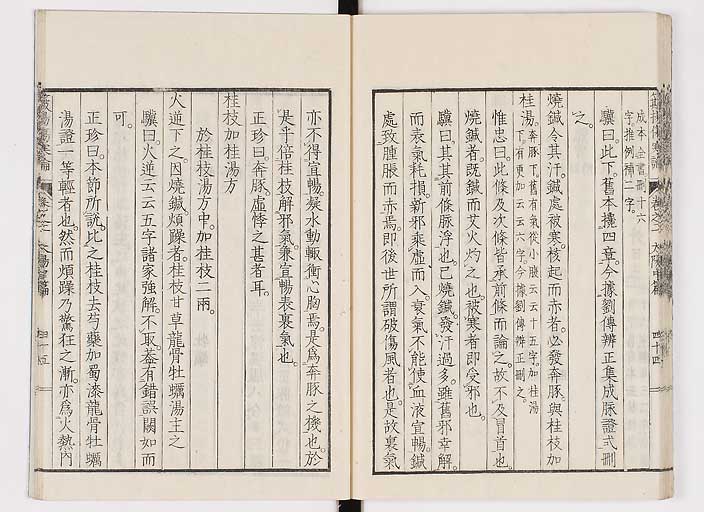 成本全書刪十六
字推例補二字
驥曰此下舊本攙四章今據劉傳辨正集成脈證式刪
之
燒鍼令其汗鍼處被寒核起而赤者必發奔豚與桂枝加
桂湯奔豚下舊有氣從小腹云云十五字加桂湯
下有更加云云六字今據劉傳辨正刪之
惟忠曰此條及次條皆承前條而論之故不及冒首也
燒鍼者既鍼而艾火灼之也被寒者即受邪也
驥曰其其前條脈浮也已燒鍼發汗過多雖舊邪幸解
而表氣耗損新邪乘虛而入衰氣不能使血液宣暢鍼
處致腫脹而赤焉即後世所謂破傷風者也是故裏氣
卷之
太陽中篇
四十四
亦不得宣暢凝水動輒衝心胸焉是爲奔豚之機也於
是乎倍桂枝解邪氣兼宣暢表裏氣也
正珍曰奔豚虛悸之甚者耳
桂枝加桂湯方
於桂枝湯方中加桂枝二兩
火逆下之因燒鍼煩躁者桂枝甘草龍骨牡蠣湯主之
驥曰火逆云云五字諸家強解不取蓋有錯誤闕如而
可
正珍曰本節所說比之桂枝去芍藥加蜀漆龍骨牡蠣
湯證一等輕者也然而煩躁乃驚狂之漸亦爲火熱內
傷寒論
四十五